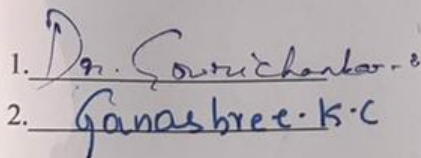 1. Dr. Gowrishankar. S
2. Ganashree. K.C